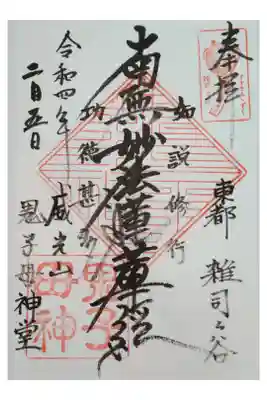 奉拝
東都 雑司ヶ谷
如説修行
南無妙法蓮華経
功徳甚多
威光山
鬼子母神堂
令和四年
二月五日
鬼子
母神